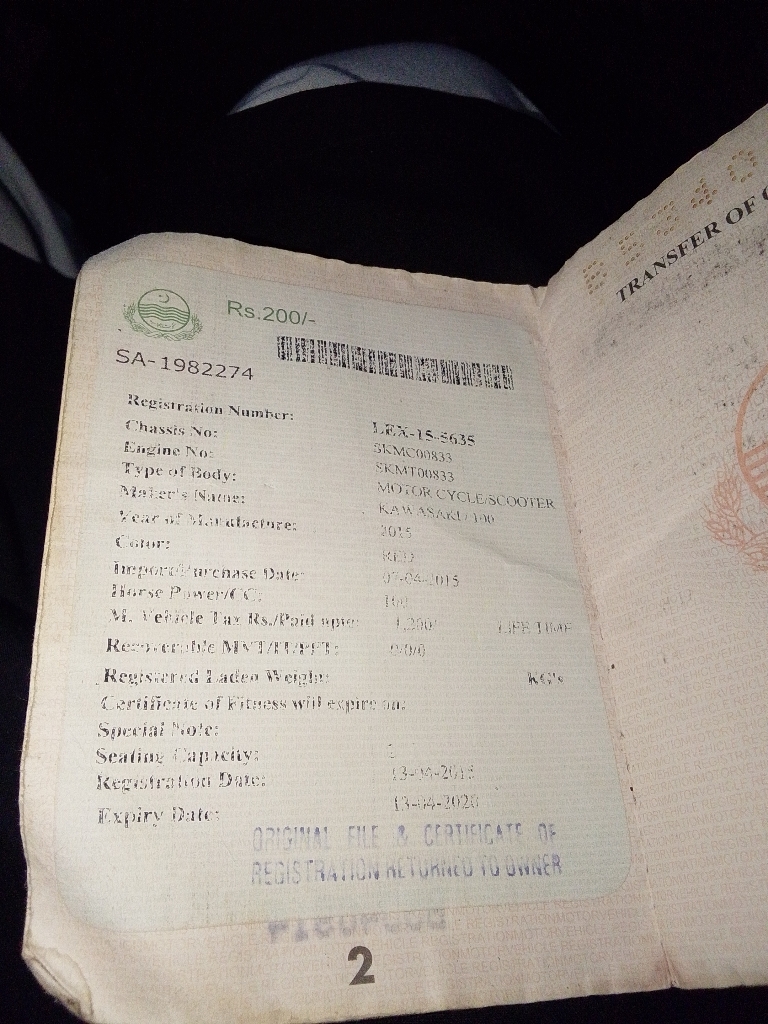 Rs.200/-
SA-1982274
Registration Number: LEX-15-5635
Chassis No: SKMC00833
Engine No: SKMT00833
Type of Body: MOTOR CYCLE/SCOOTER
Maker's Name: KAWASAKI/ 100
Year of Manufacture: 2015
Color: RED
Import/Purchase Date: 07-04-2015
Horse Power/CC: 100
M. Vehicle Tax Rs./Paid upto: 1,200/ LIFE TIME
Recoverable MVT/IT/PFT: 0/0/0
Registered Laden Weight: KG's
Certificate of Fitness will expire on:
Special Note:
Seating Capacity: 2
Registration Date: 13-04-2015
Expiry Date: 13-04-2020
ORIGINAL FILE & CERTIFICATE OF
REGISTRATION RETURNED TO OWNER
2
TRANSFER OF